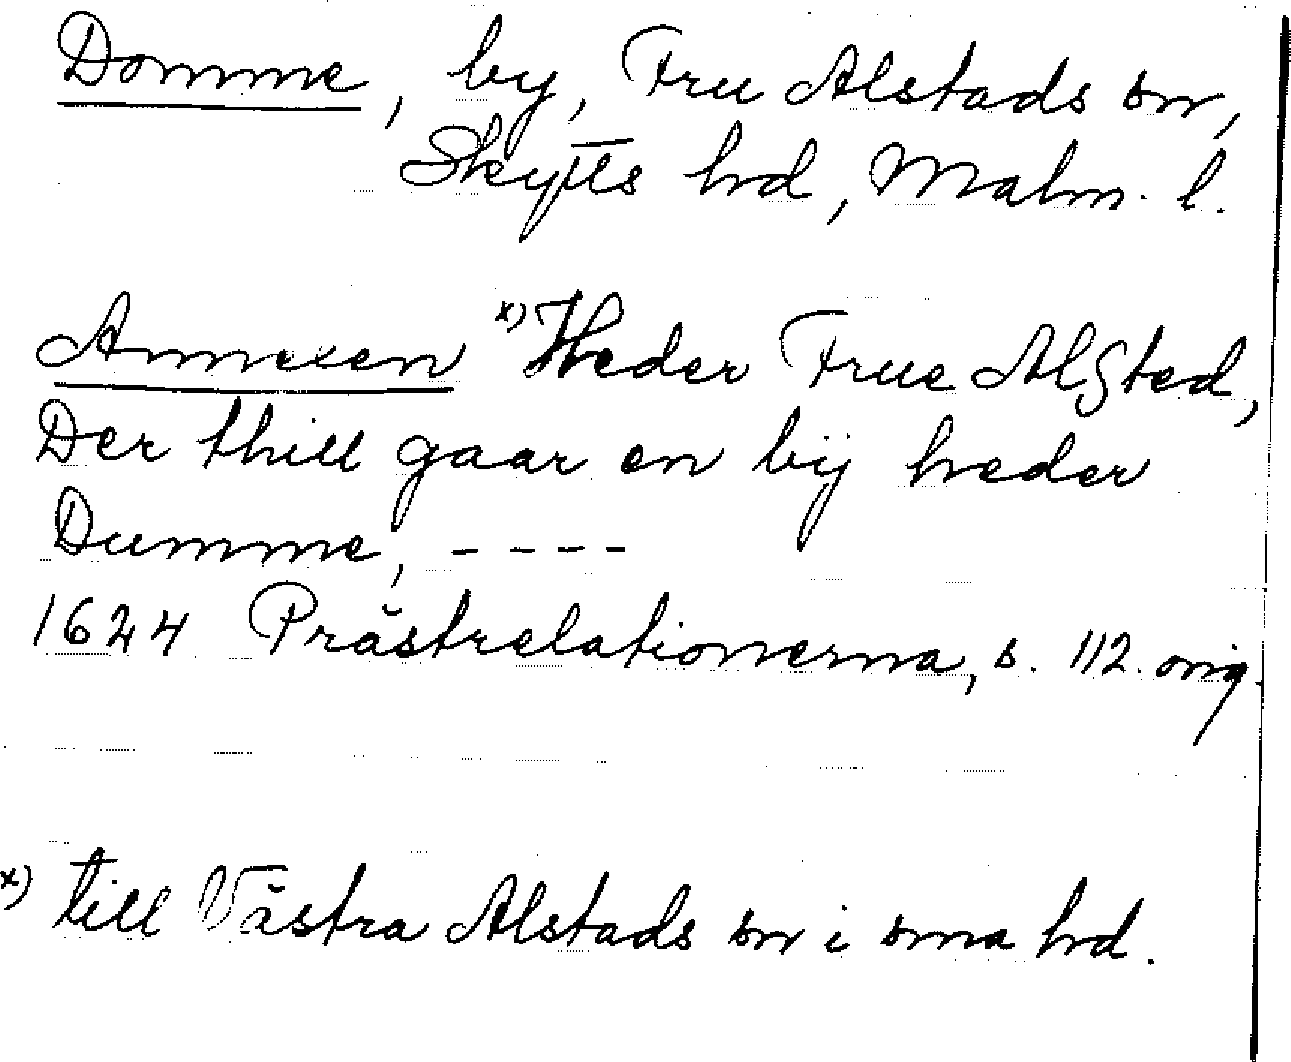 Domme, by, Fru Alstads sn,
Skytts hrd, Malm. l.
Annexen x) Heder Frue Alsted,
Der thill gaar en bÿ heder
Dumme, ----
1624 Prästrelationerna, s. 112. orig.
x) till Västra Alstads sn i sma hrd.